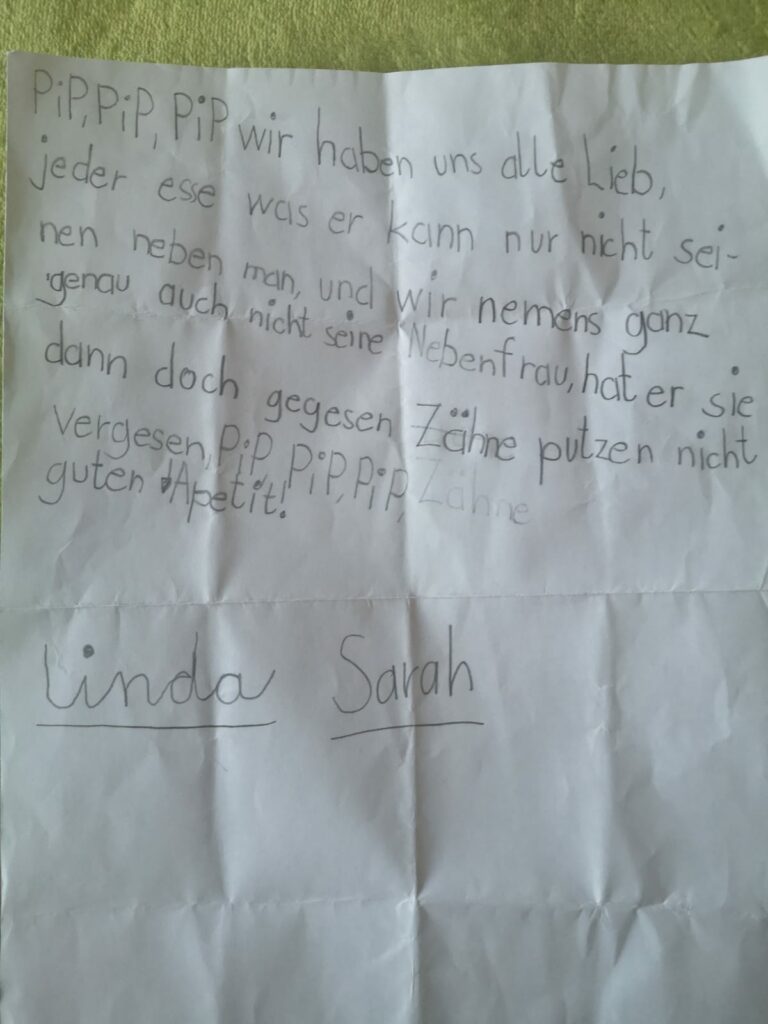 PiP, PiP, PiP wir haben uns alle Lieb,
jeder esse was er kann nur nicht sei-
nen neben man, und wir nemens ganz
genau auch nicht seine Nebenfrau, hat er sie
dann doch gegesen Zähne putzen nicht
vergesen, PiP, PiP, PiP, Zähne
guten Apetit!
Linda Sarah